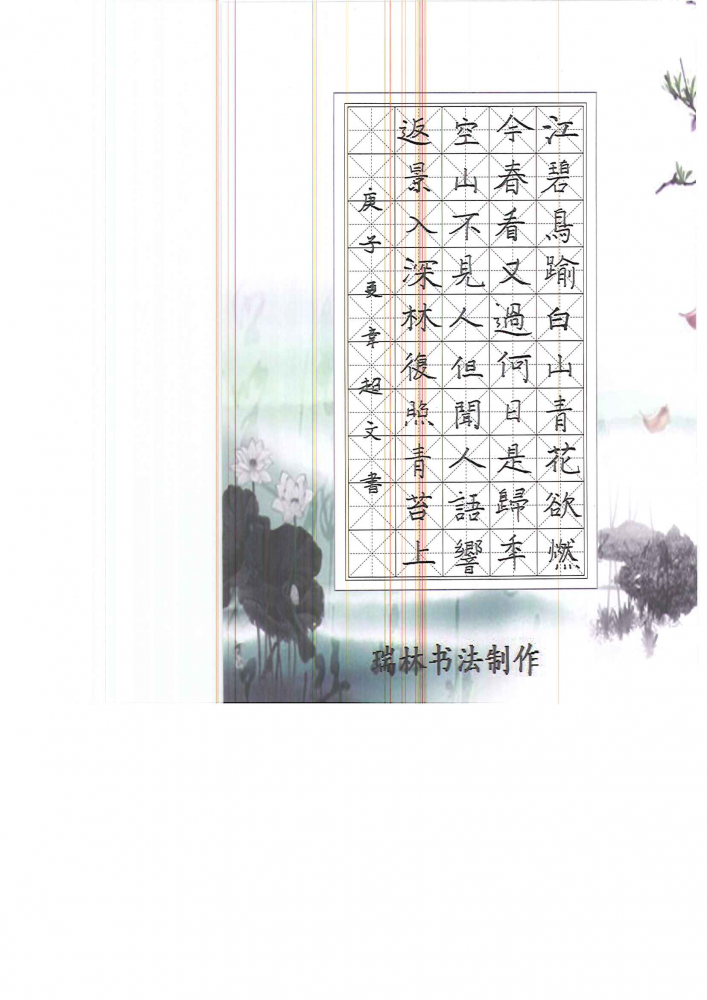 江碧鳥踰白山青花欲燃
今春看又過何日是歸年
空山不見人但聞人語響
返景入深林復照青苔上
庚子夏韋超文書
瑞林书法制作